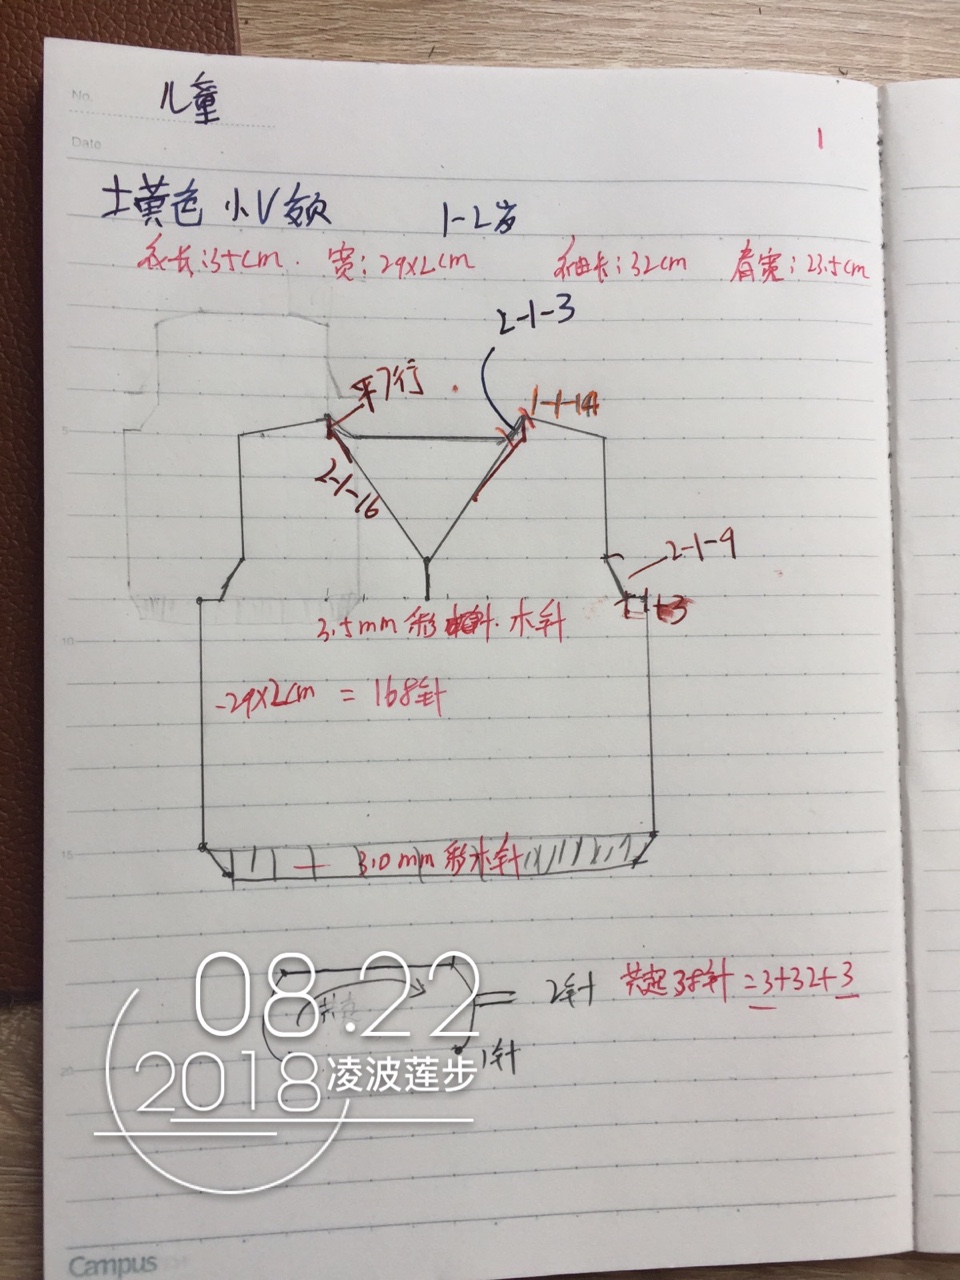 No.
儿童
Date
1
土黄色 小V领 1-2岁
衣长:35cm. 宽:29x2cm 袖长:32cm 肩宽:23.5cm
2-1-3
平7行
1-1-14
2-1-16
2-1-9
3.5mm 彩 木针
29x2cm = 168针
3.0mm 彩木针
2针 共起38针=3+32+3
1针
08.22
2018 凌波莲步
5
10
15
20
Campus